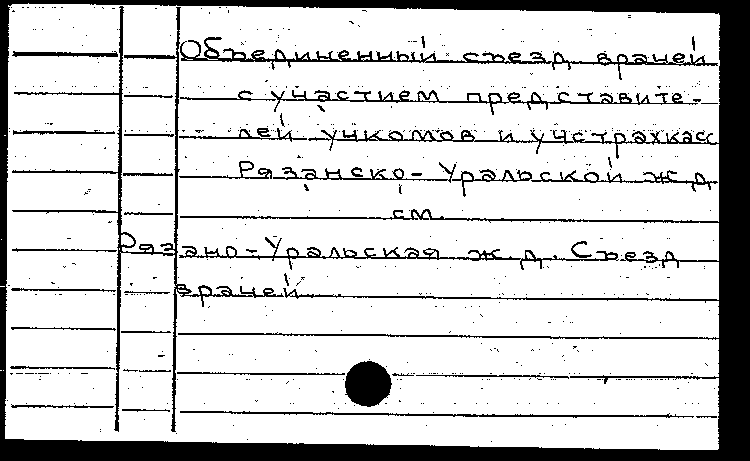 Объединенный съезд врачей
с участием представите-
лей учкомов и учстрахкасс
Рязанско-Уральской ж.д.
см.
Рязано-Уральская ж.д. Съезд
врачей